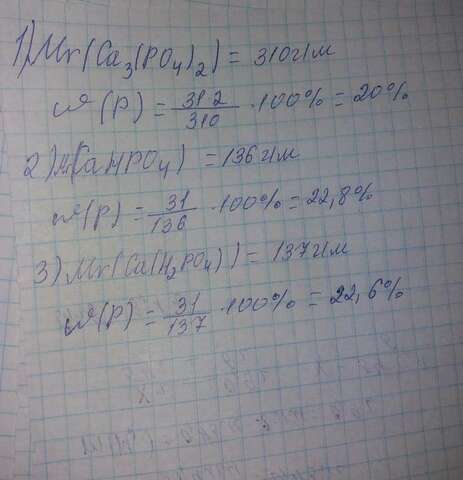 1) Mr(Ca₃(PO₄)₂) = 310 г/м
ω(P) = 31·2/310 · 100% = 20%
2) Mr(CaHPO₄) = 136 г/м
ω(P) = 31/136 · 100% = 22,8%
3) Mr(Ca(H₂PO₄)) = 137 г/м
ω(P) = 31/137 · 100% = 22,6%